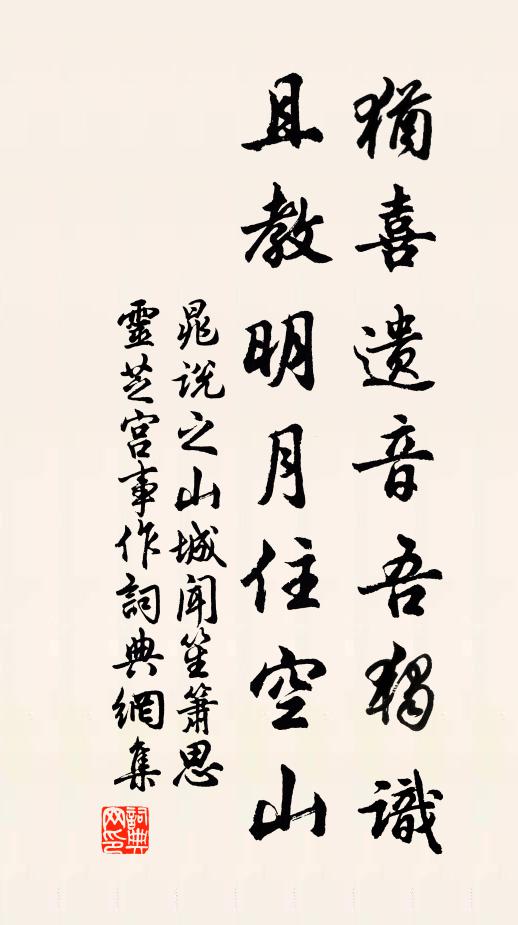 猶喜遺音吾獨識
且教明月住空山
晁說之山城聞笙簫思
靈芝宮事作詞典網集
詞典網印